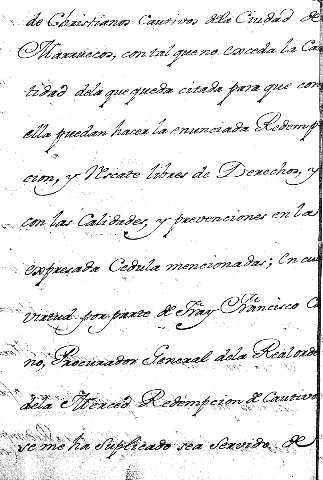 de Christianos Cautivos dela Ciudad de
Marruecos, con tal que no exceda la Can
tidad dela que queda citada para que com
ella puedan hacer la enunciada Redemp
cion, y Rescate libres de Derechos, y
con las Calidades, y prevenciones en las
expresada Cedula mencionadas; En cui
virtud por parte de Fray Francisco Ca
no, Procurador General dela Real orde
dela Merced Redempcion de Cautivo
se me ha suplicado sea servido de